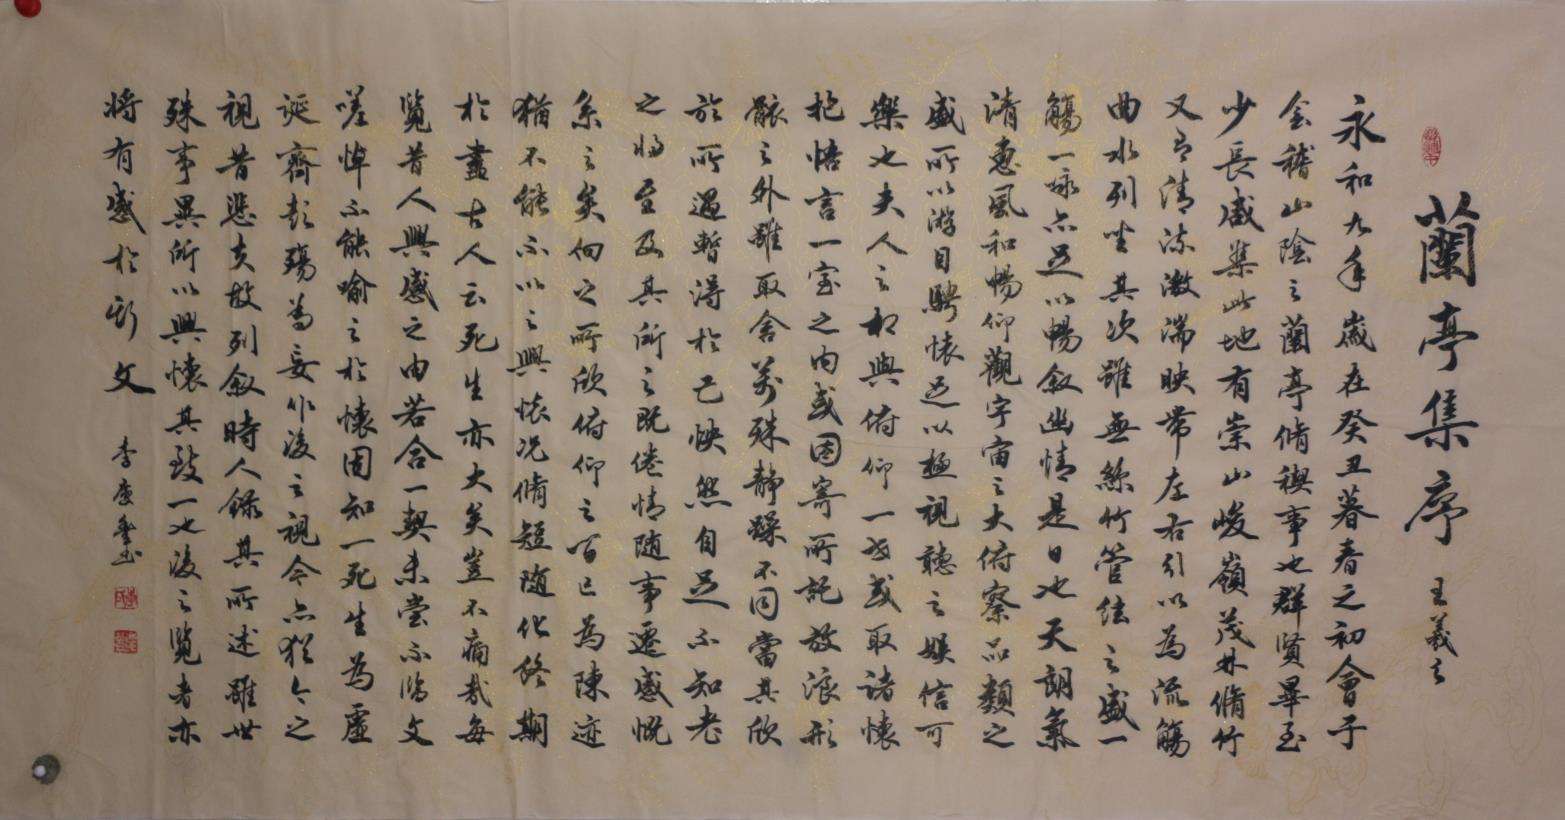 蘭亭集序 王羲之
永和九年歲在癸丑暮春之初會于
会稽山陰之蘭亭脩禊事也群賢畢至
少長咸集此地有崇山峻嶺茂林脩竹
又有清流激湍映帶左右引以為流觴
曲水列坐其次雖無絲竹管弦之盛一
觴一詠亦足以暢叙幽情是日也天朗氣
清惠風和暢仰觀宇宙之大俯察品類之
盛所以游目騁懷足以極視聽之娛信可
樂也夫人之相與俯仰一世或取諸懷
抱悟言一室之內或因寄所託放浪形
骸之外雖取舍萬殊靜躁不同當其欣
於所遇暫得於己怏然自足不知老
之將至及其所之既倦情随事遷感慨
系之矣向之所欣俯仰之間已為陳迹
猶不能不以之興懷况脩短随化終期
於盡古人云死生亦大矣豈不痛哉每
覽昔人興感之由若合一契未嘗不臨文
嗟悼不能喻之於懷固知一死生為虛
誕齊彭殤為妄作後之視今亦猶今之
視昔悲夫故列叙時人錄其所述雖世
殊事異所以興懷其致一也後之覽者亦
將有感於斯文
李